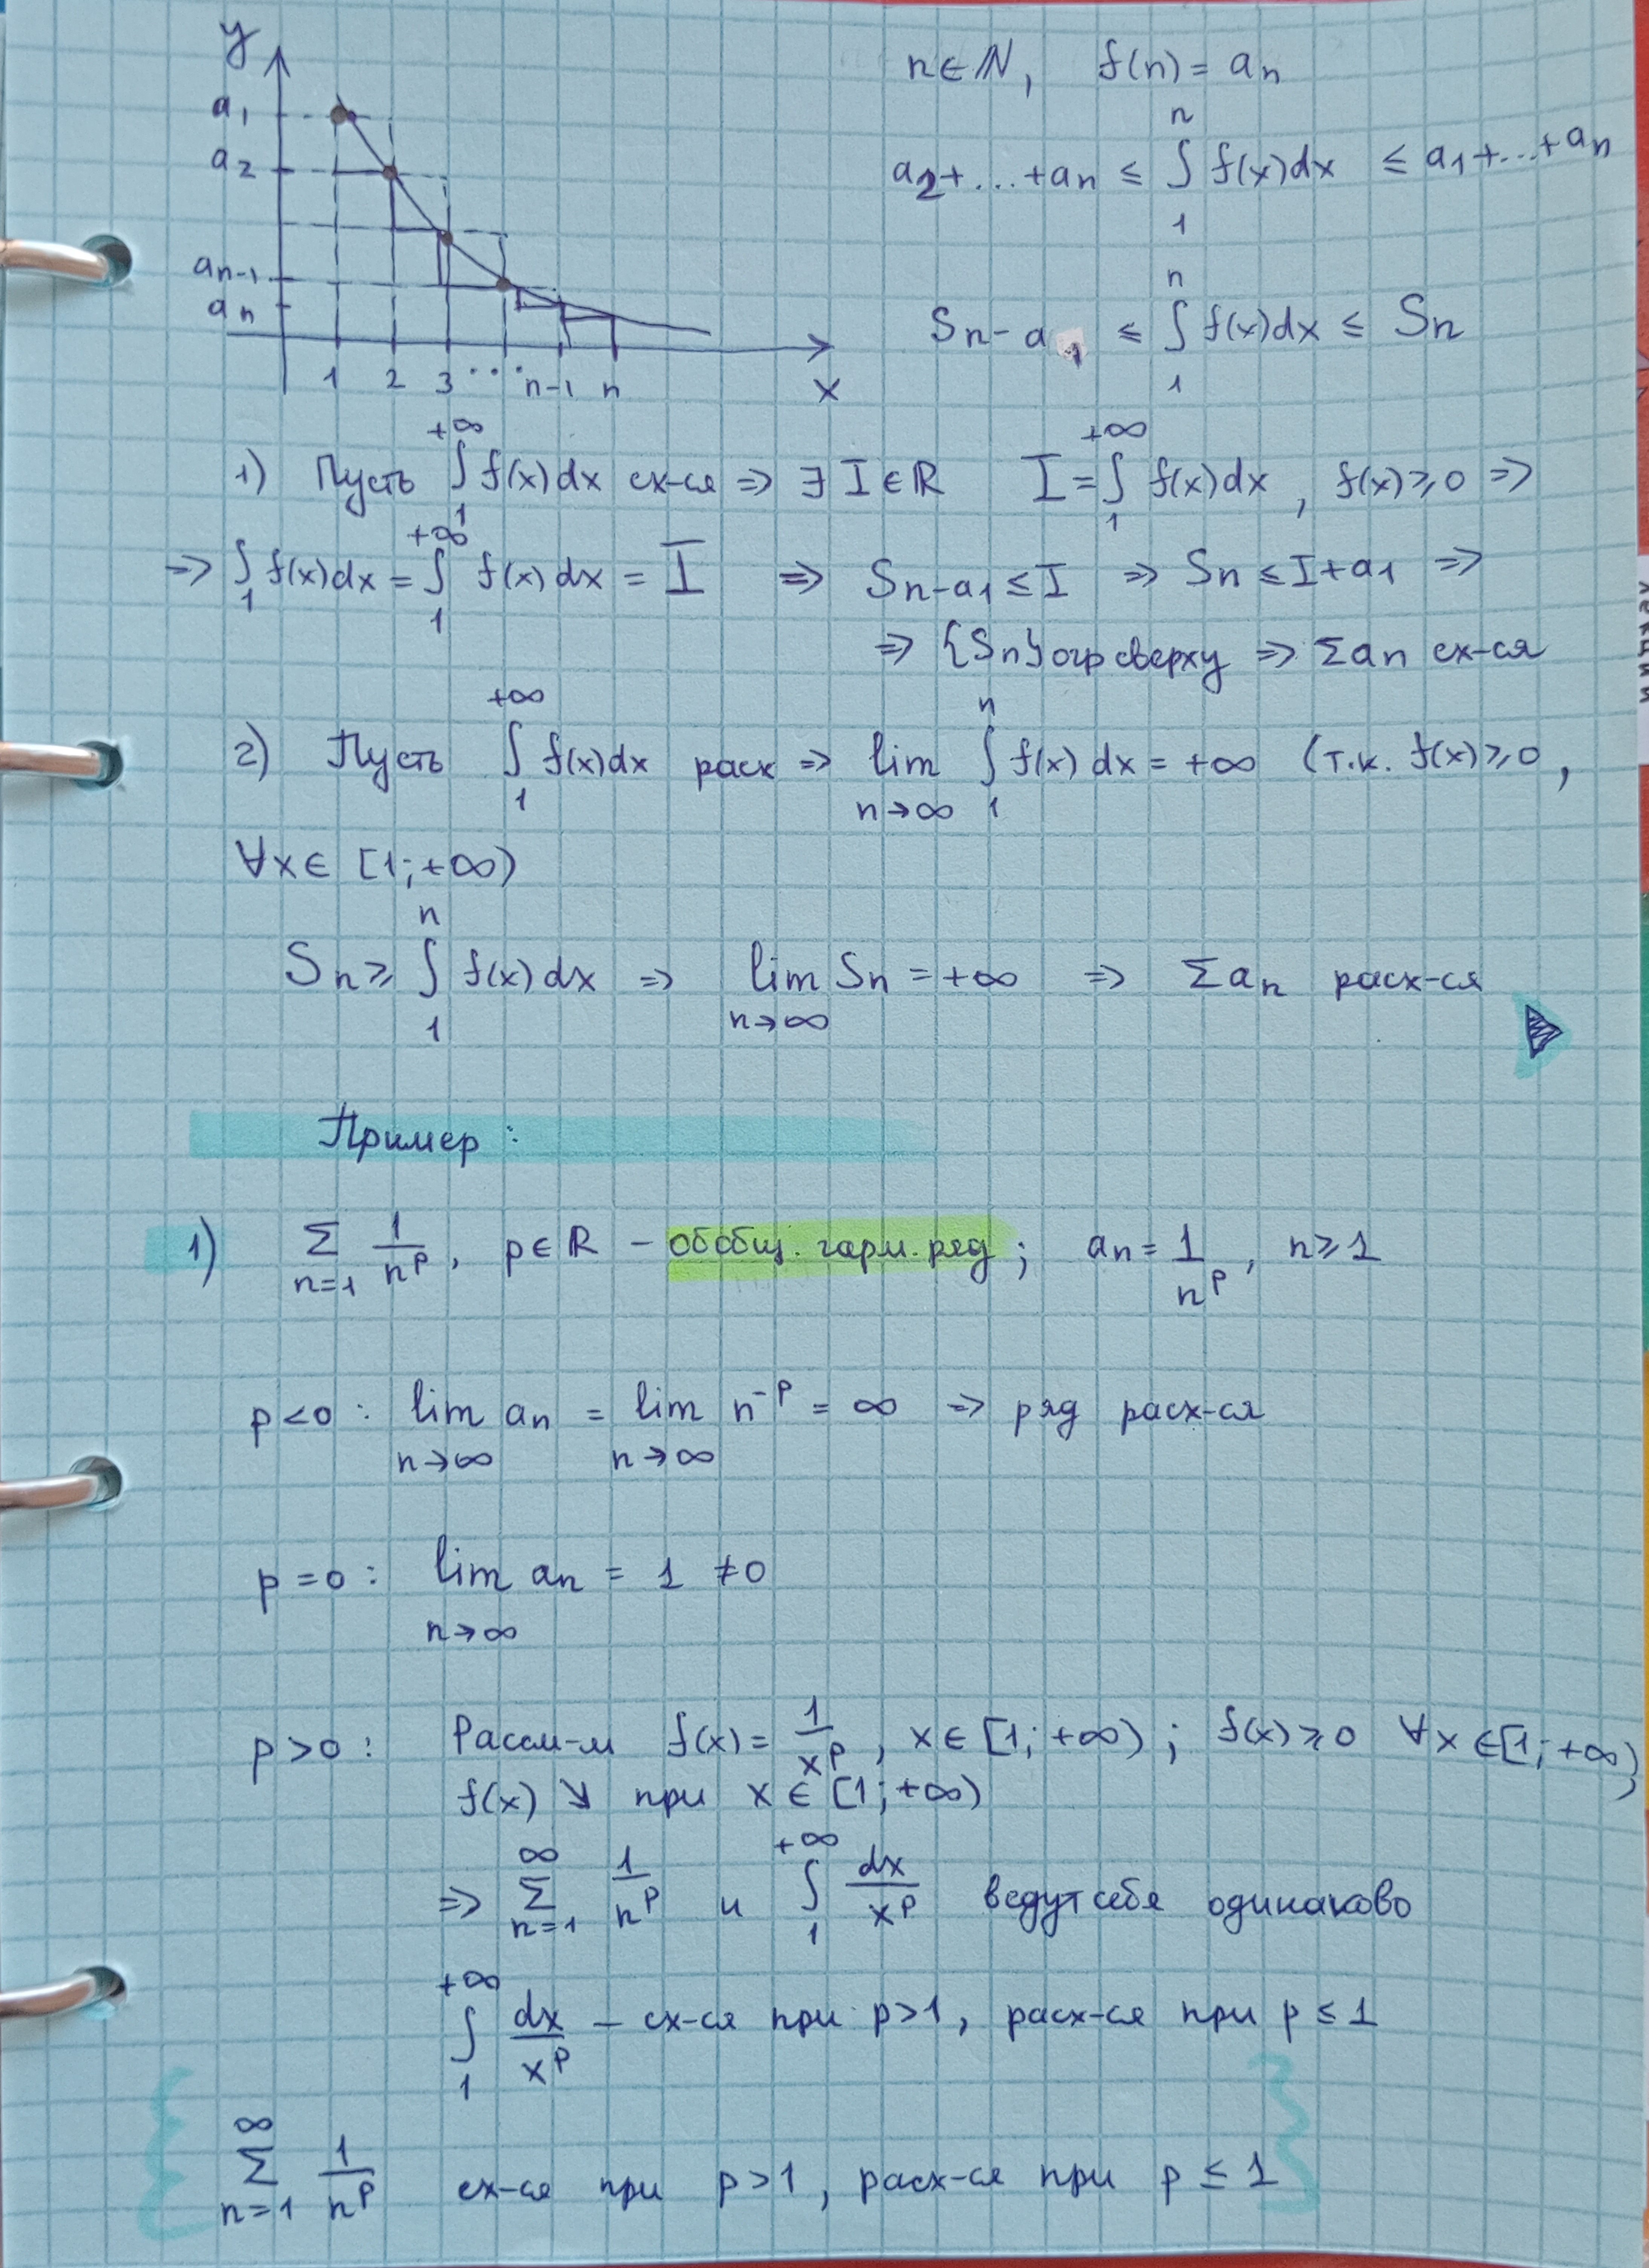 y
a₁
a₂
aₙ₋₁
aₙ
1 2 3 ... n-1 n x
n∈ℕ, f(n) = aₙ
a₂+...+aₙ ≤ ∫₁ⁿ f(x)dx ≤ a₁+...+aₙ
Sₙ-a₁ ≤ ∫₁ⁿ f(x)dx ≤ Sₙ
1) Пусть ∫₁^{+∞} f(x)dx сх-ся => ∃ I∈ℝ I = ∫₁^{+∞} f(x)dx, f(x)≥0 =>
=> ∫₁ f(x)dx = ∫₁^{+∞} f(x)dx = I => Sₙ-a₁ ≤ I => Sₙ ≤ I+a₁ =>
=> {Sₙ} огр сверху => Σaₙ сх-ся
2) Пусть ∫₁^{+∞} f(x)dx расх => lim_{n→∞} ∫₁ⁿ f(x)dx = +∞ (т.к. f(x)≥0,
∀x∈ [1;+∞)
Sₙ ≥ ∫₁ⁿ f(x)dx => lim_{n→∞} Sₙ = +∞ => Σaₙ расх-ся
Пример:
1) Σ_{n=1} 1/n^p, p∈ℝ – обобщ. гарм. ряд; aₙ = 1/n^p, n≥1
p<0: lim_{n→∞} aₙ = lim_{n→∞} n^{-p} = ∞ => ряд расх-ся
p=0: lim_{n→∞} aₙ = 1 ≠0
p>0: Рассм-м f(x) = 1/x^p, x∈[1;+∞); f(x)≥0 ∀x∈[1;+∞)
f(x) ↘ при x∈[1;+∞)
=> Σ_{n=1}^{∞} 1/n^p и ∫₁^{+∞} dx/x^p ведут себя одинаково
∫₁^{+∞} dx/x^p – сх-ся при p>1, расх-ся при p≤1
Σ_{n=1}^{∞} 1/n^p сх-ся при p>1, расх-ся при p≤1